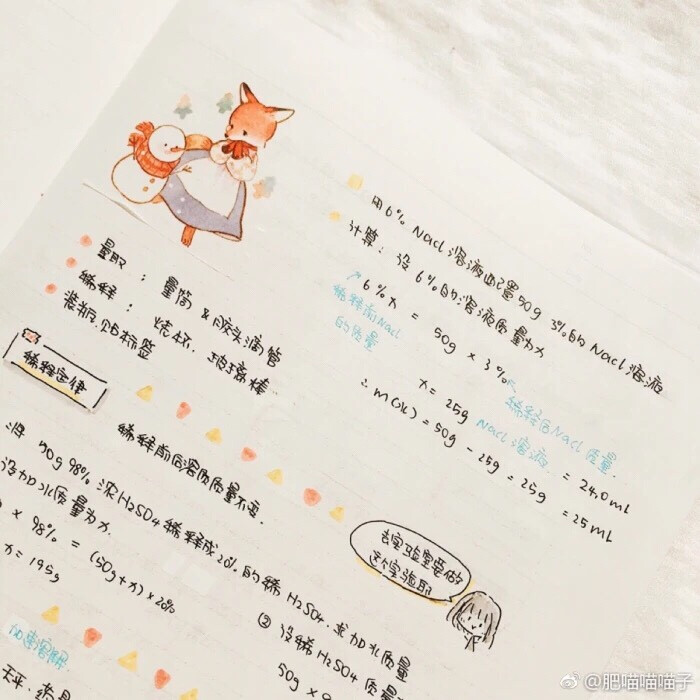 用6% NaCl溶液配置50g 3%的NaCl溶液
计算：设6%的溶液质量为x
6%x = 50g × 3%
稀释前NaCl的质量
稀释后NaCl质量
x = 25g NaCl溶液 = 24.0mL
∴ m(水) = 50g - 25g = 25g = 25mL
量取：量筒 & 胶头滴管
稀释：烧杯、玻璃棒
装瓶、贴标签
稀释定律
稀释前后溶质质量不变.
将50g 98%浓H₂SO₄稀释成20%的稀H₂SO₄.求加水质量
设加水质量为x.
× 98% = (50g+x) × 20%
x = 195g
去实验室要做
这实验耶
② 设稀H₂SO₄质量
50g ×
天平、药
@肥喵喵喵子